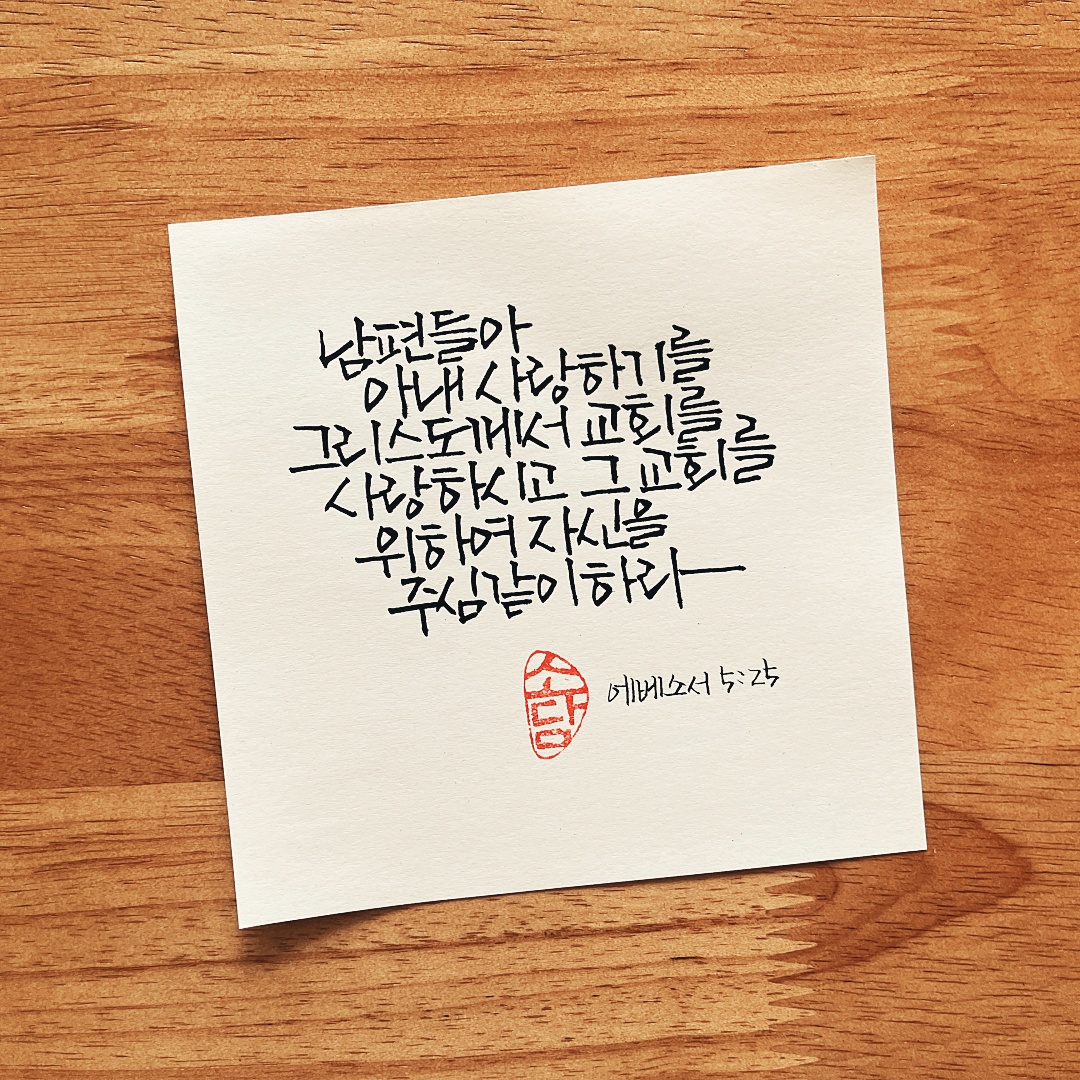 남편들아
아내 사랑하기를
그리스도께서 교회를
사랑하시고 그 교회를
위하여 자신을
주심같이 하라
소담
에베소서 5:25